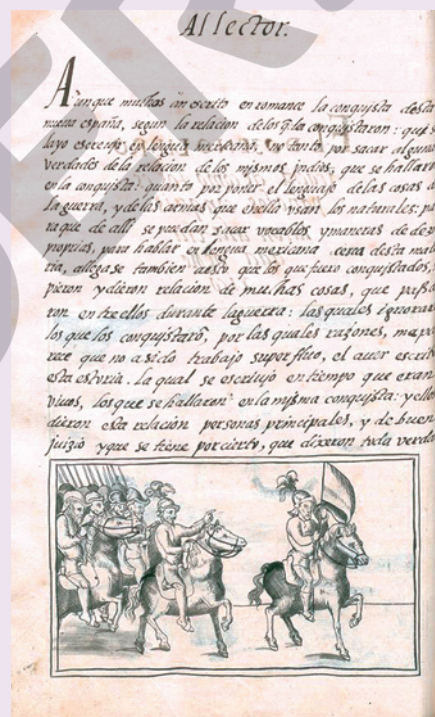 Al lector.
Aunque muchas án escrito en romance la conquista desta
nueva españa, segun la relacion delos q̃ la conquistaron: quis
layo escreuir en lengua mexicana, no tanto por sacar alguna
verdades de la relacion de los mismos indios, que se hallaro
en la conquista: quanto por poner el lenguaje delas cosas d
la guerra, y delas armas que enella vsan los naturales: pa
raque de alli se puedan sacar vocablos y maneras de dez
proprias, para hablar en lengua mexicana cerca desta mate
ria, allegase tambien aesto que los que fuero conquistados,
pieron y dieron relacion de muchas cosas, que passa
ron entre ellos durante laguerra: las quales ignorar
los que los conquistarõ, por las quales razones, me pa
rece que no a sido trabajo superfluo, el auer escrit
esta estoria. La qual se escriuio en tiempo que eran
viuos, los que se hallaron en la misma conquista: y ello
dieron esta relación personas principales, y de buen
juizio y que se tiene por cierto, que dixeron toda verda